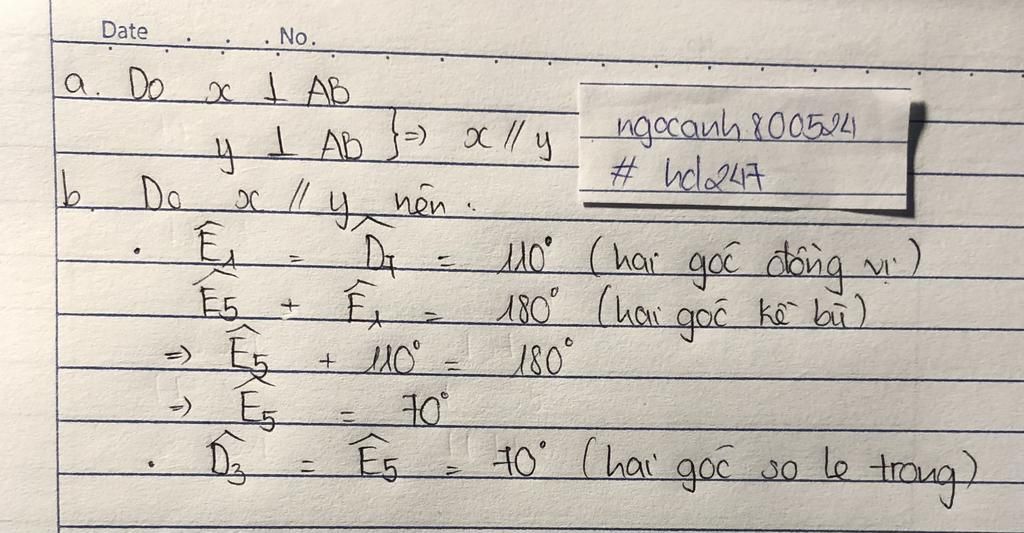 Date . . . No.
a. Do x ⊥ AB
y ⊥ AB } => x // y
ngocanh800524
# hd247
b. Do x // y nên .
. Ê1 = D̂7 = 110° (hai góc đồng vị)
Ê5 + Ê1 = 180° (hai góc kề bù)
=> Ê5 + 110° = 180°
=> Ê5 = 70°
. D̂3 = Ê5 = 70° (hai góc so le trong)